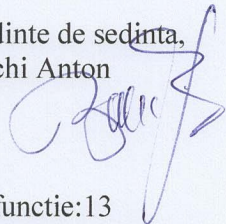 dinte de sedinta,
chi Anton
functie:13